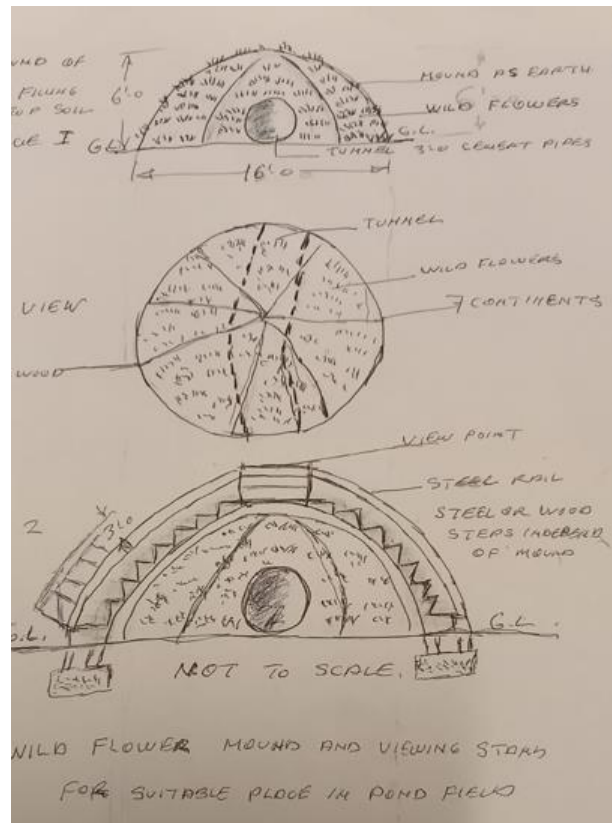 UND OF
FILLING
TOP SOIL
6'.0
MOUND AS EARTH
WILD FLOWERS
G.L.
G.L.
TUNNEL 3'.0 CEMENT PIPES
16'.0
TUNNEL
VIEW
WILD FLOWERS
7 CONTINENTS
WOOD
VIEW POINT
STEEL RAIL
2
3'.0
STEEL OR WOOD
STEPS INDEPEND
OF MOUND
G.L.
G.L.
NOT TO SCALE.
WILD FLOWER MOUND AND VIEWING STAND
FOR SUITABLE PLACE IN POND FIELD